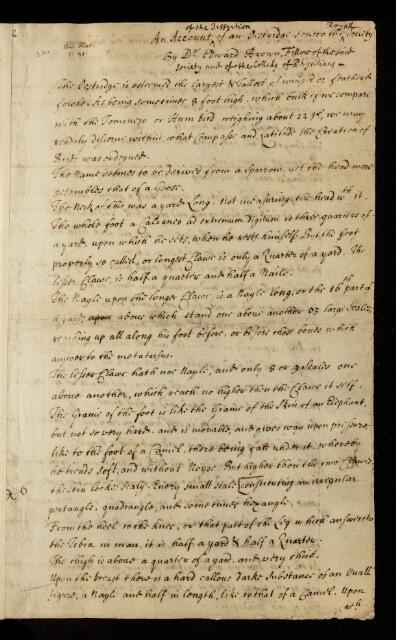 of the dissection
An Account of an Oestridge sent to the Royall Society
By Dr. Edward Brown, Fellow of the said
Society and of the Colledg of Physitians
The Oestridge is esteemed the largest & tallest of winged or feathered
fowle. As being sometimes 8 foot high, which bulk if we compare
with the Tomineio or Hum bird weighing about 12 gr, we may
readily discerne within what Compasse and Latitude the Creation of
Birds was ordeyned.
The Name seemes to be derived from a Sparrow, yet the head more
resembles that of a Goose.
The Neck of this was a yard Long. Not measuring the head wth it.
The whole foot a Calcaneo ad extremum digitum is three quarters of
a yard, upon which he sits, when he rests himself. But the foot
properly so called, or longest Clawe is only a Quarter of a yard. The
lesser Clawe, is half a quarter and half a Naile.
The Nayle upon the longer Clawe, is a Nayle long, or the 16th part of
a yard above which stand one above another 03 large scales,
reaching up all along his foot before, or before those bones which
answer to the metatarsus.
The lesser Clawe hath noe Nayle, and only 8 or 9 Scales one
above another, which reach no higher then the Clawe it self.
The Graine of the foot is like the Graine of the Skin of an Elephant,
but not so very hard. and is movable, and gives way upon pressure
like to the foot of a Camel, there being fatt under it, whereby
he treads soft, and without Noyse. But higher then the two Clawes,
the skin lookes scaly. Every small scale Constituting an irregular
pentangle, quadrangle, and sometimes hexangle.
From the heel to the knee, or that part of the Leg which answers to
the Tibia in man, it is half a yard & half a Quarter.
The thigh is above a quarter of a yard, and very thick.
Upon the breast there is a hard callous darke Substance of an Ovall
figure, a Nayle and half in length, like to that of a Camel. Upon
wch